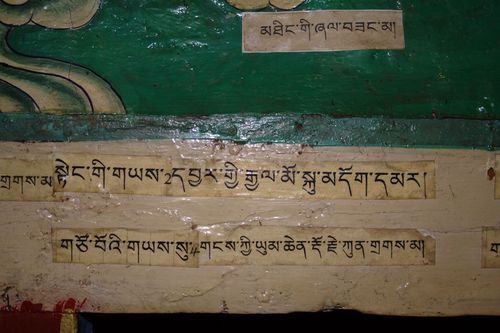 མཐིང་གི་ཞལ་བཟང་མ།
གྲགས་མ
སྟེང་གི་གཡས་2དབྱར་གྱི་རྒྱལ་མོ་སྐུ་མདོག་དམར།
གཙོ་བོའི་གཡས་སུ་གངས་ཀྱི་ཡུམ་ཆེན་རྡོ་རྗེ་ཀུན་གྲགས་མ།
ག